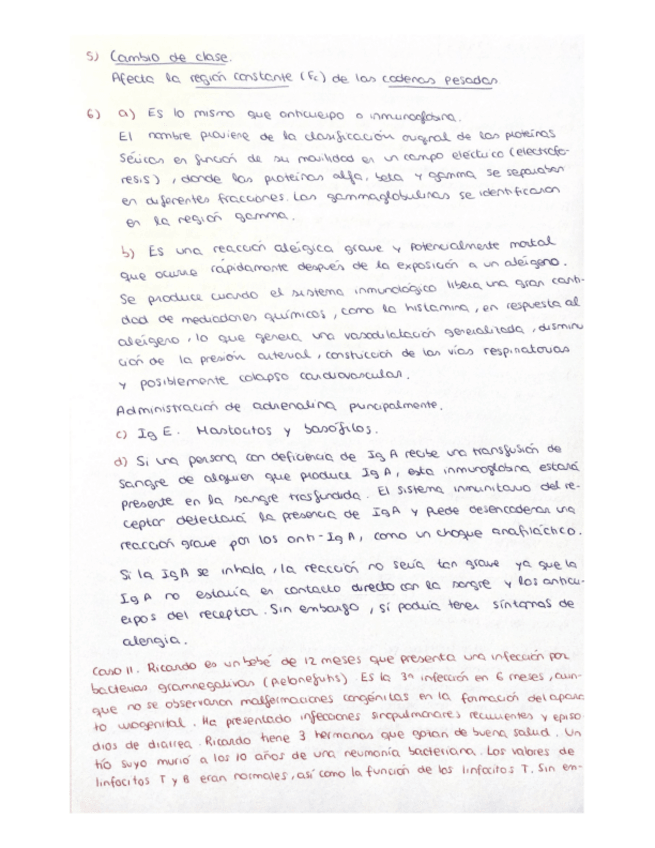 5) Cambio de clase.
Afecta la región constante (Fc) de las cadenas pesadas
6) a) Es lo mismo que anticuerpo o inmunoglobina.
El nombre proviene de la clasificación original de las proteínas
séricas en función de su movilidad en un campo eléctrico (electrofo-
resis), donde las proteínas alfa, beta y gamma se separaban
en diferentes fracciones. Las gammaglobulinas se identificaron
en la región gamma.
b) Es una reacción alérgica grave y potencialmente mortal
que ocurre rápidamente después de la exposición a un alérgeno.
Se produce cuando el sistema inmunológico libera una gran canti-
dad de mediadores químicos, como la histamina, en respuesta al
alérgeno, lo que genera una vasodilatación generalizada, disminu
ción de la presión arterial, constricción de las vías respiratorias
y posiblemente colapso cardiovascular.
Administración de adrenalina principalmente.
c) IgE. Mastocitos y basófilos.
d) Si una persona con deficiencia de IgA recibe una transfusión de
sangre de alguien que produce IgA, esta inmunoglobina estará
presente en la sangre trasfundida. El sistema inmunitario del re-
ceptor detectará la presencia de IgA y puede desencadenar una
reacción grave por los anti-IgA, como un choque anafiláctico.
Si la IgA se inhala, la reacción no sería tan grave ya que la
IgA no estaría en contacto directo con la sangre y los anticu-
erpos del receptor. Sin embargo, sí podría tener síntomas de
alergia.
Caso 11. Ricardo es un bebé de 12 meses que presenta una infección por
bacterias gramnegativas (pielonefritis). Es la 3ª infección en 6 meses, aun-
que no se observaron malformaciones congénitas en la formación del apara
to urogenital. Ha presentado infecciones sinopulmonares recurrentes y episo
dios de diarrea. Ricardo tiene 3 hermanas que gozan de buena salud. Un
tío suyo murió a los 10 años de una neumonía bacteriana. Los valores de
linfocitos T y B eran normales, así como la función de los linfocitos T. Sin em-